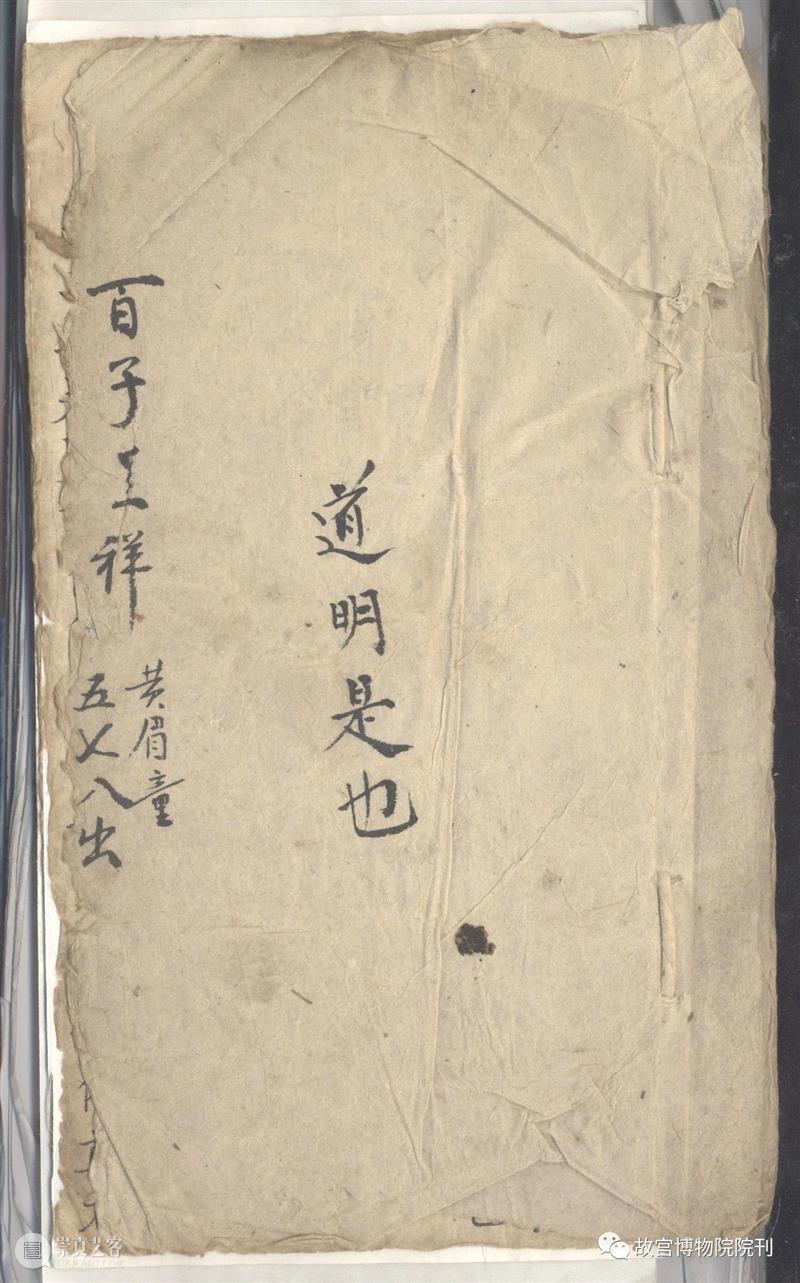 道明是也
百子呈祥
黄眉童
五〤八出
崇真艺客
故宫博物院院刊